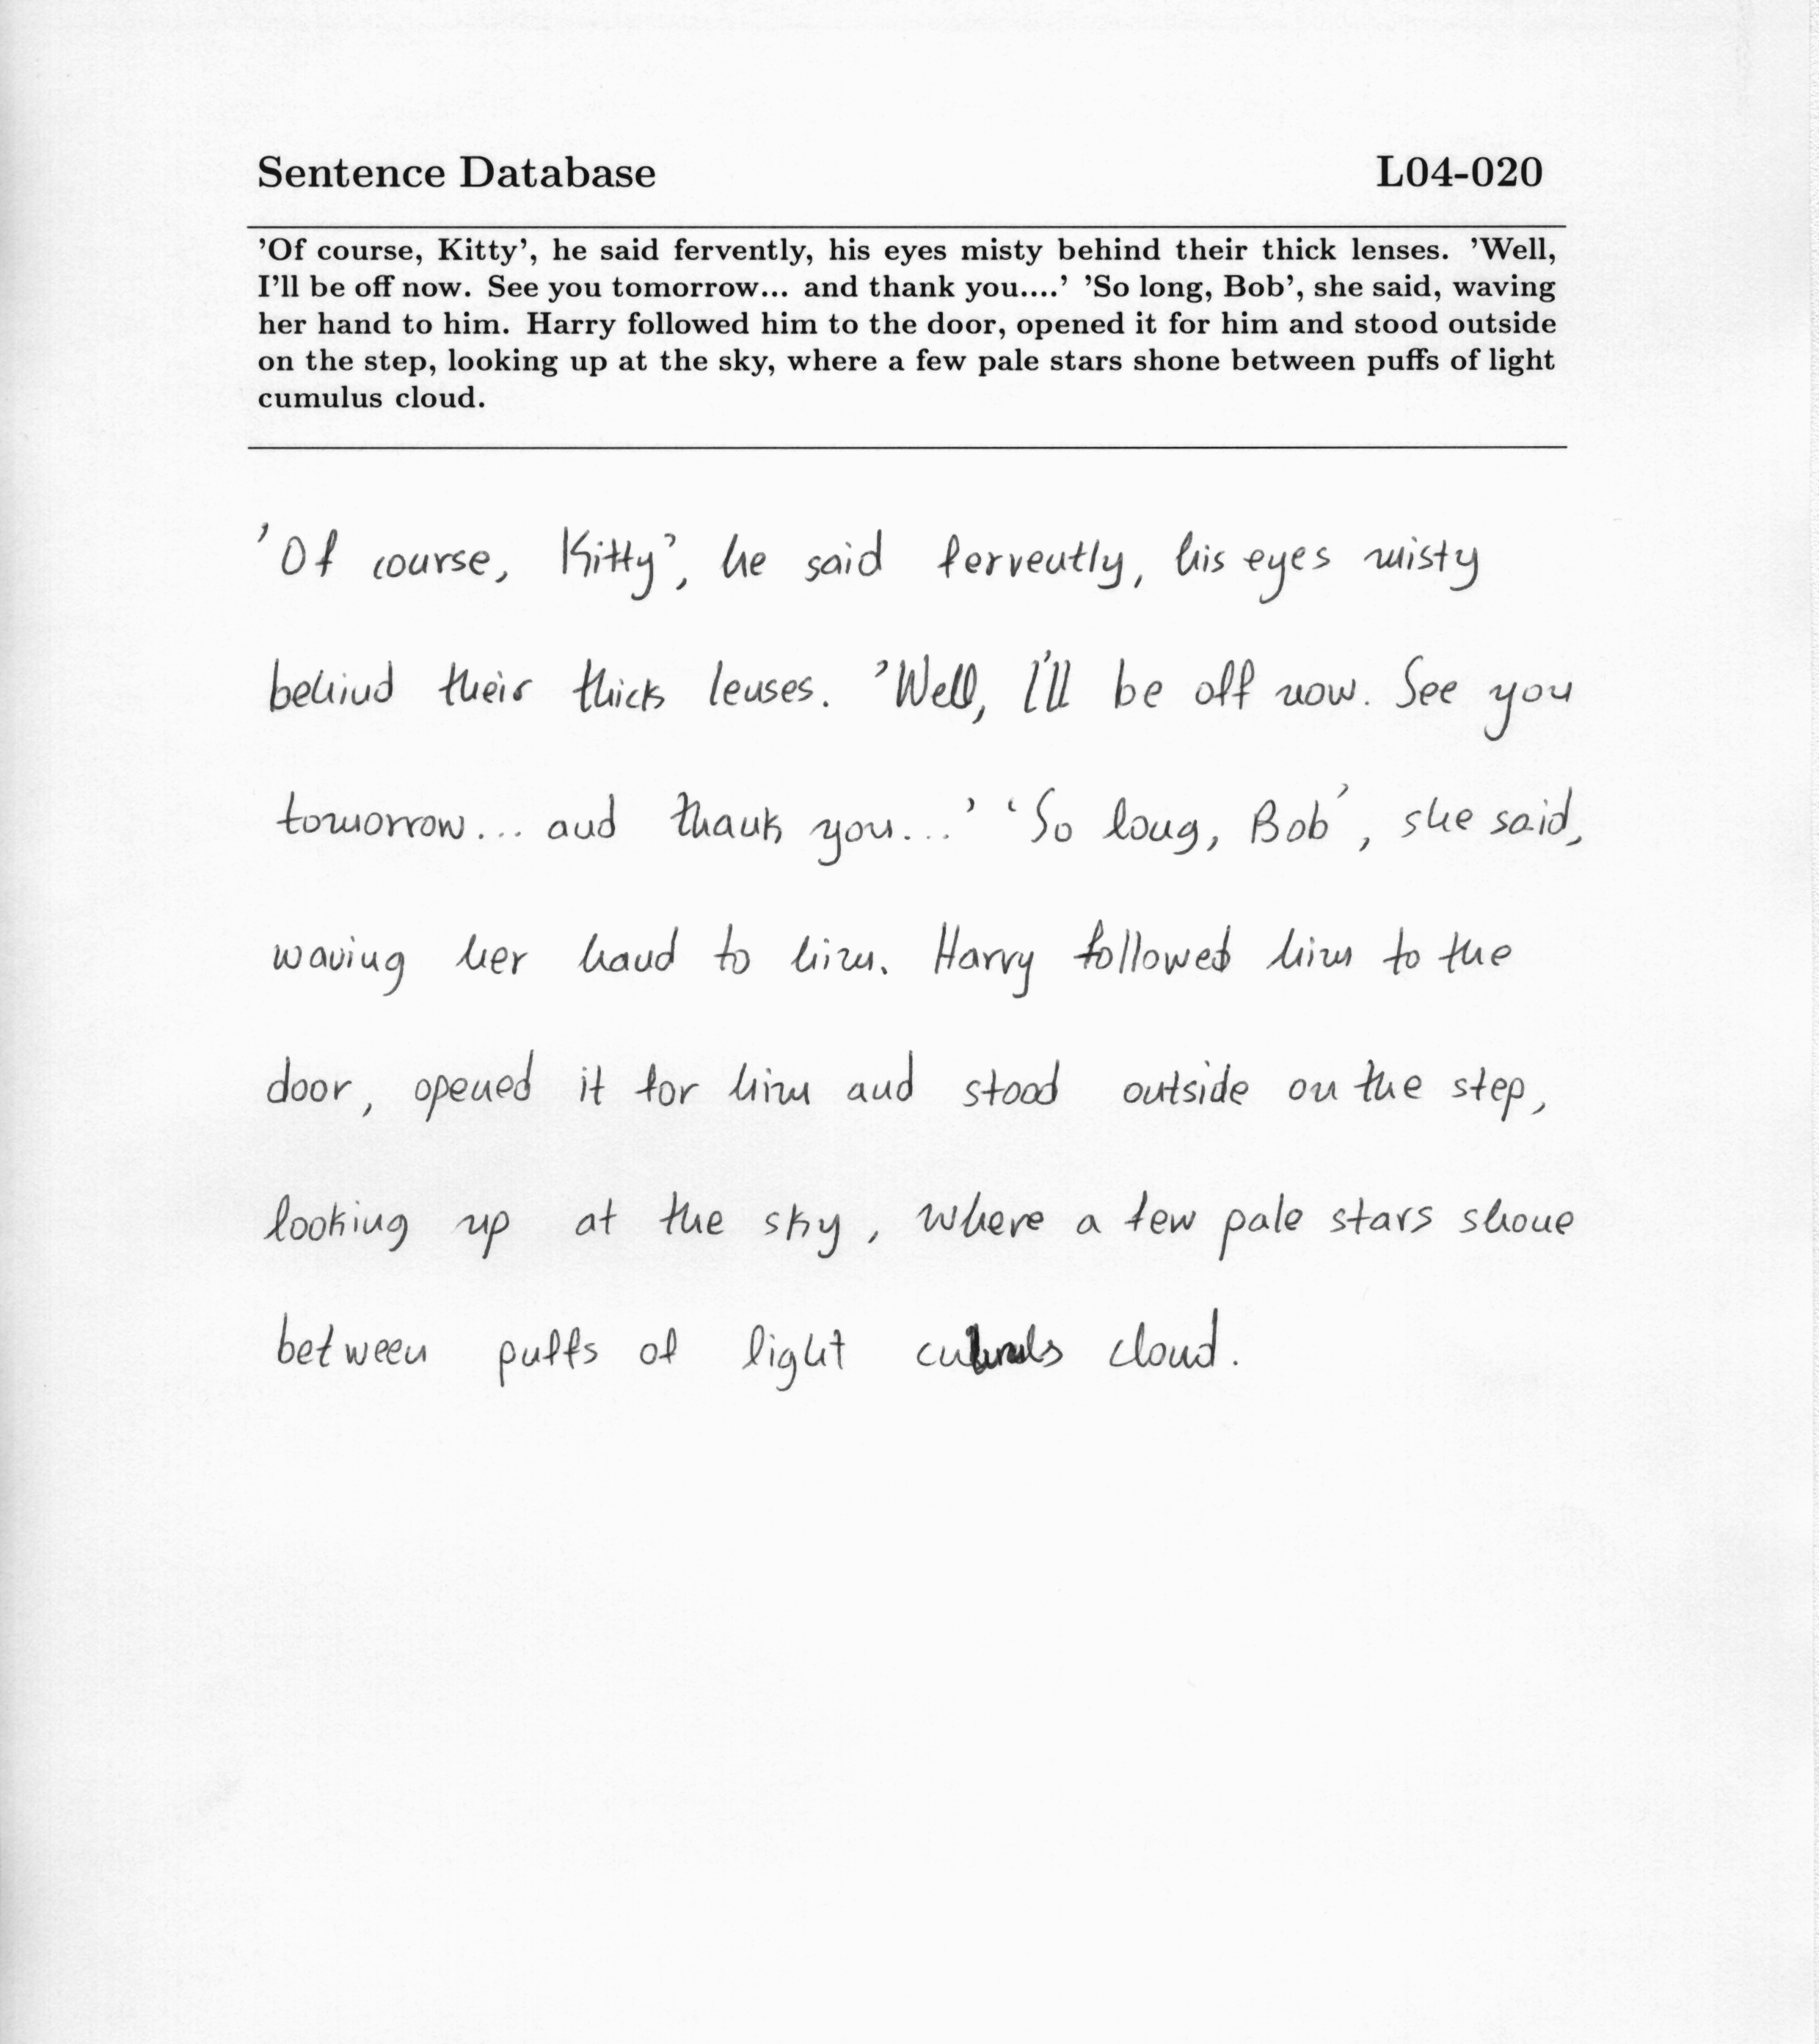 Sentence Database L04-020
’Of course, Kitty’, he said fervently, his eyes misty behind their thick lenses. ’Well,
I’ll be off now. See you tomorrow... and thank you....’ ’So long, Bob’, she said, waving
her hand to him. Harry followed him to the door, opened it for him and stood outside
on the step, looking up at the sky, where a few pale stars shone between puffs of light
cumulus cloud.
’Of course, Kitty’, he said fervently, his eyes misty
behind their thick lenses. ’Well, I’ll be off now. See you
tomorrow... and thank you...’ ‘So long, Bob’, she said,
waving her hand to him. Harry followed him to the
door, opened it for him and stood outside on the step,
looking up at the sky, where a few pale stars shone
between puffs of light cloud.